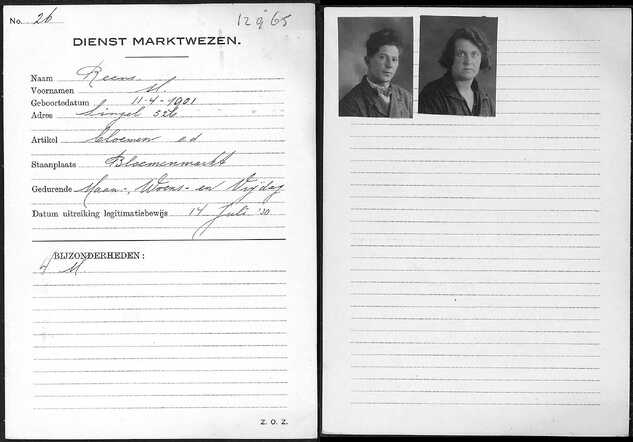 No. 26
12965
DIENST MARKTWEZEN.
Naam Reens.
Voornamen M.
Geboortedatum 11-4-1901
Adres Singel 526
Artikel bloemen ed
Staanplaats Bloemenmarkt
Gedurende Maan-, Woens- en Vrijdag
Datum uitreiking legitimatiebewijs 14 Juli '30
BIJZONDERHEDEN:
M.
Z. O. Z.